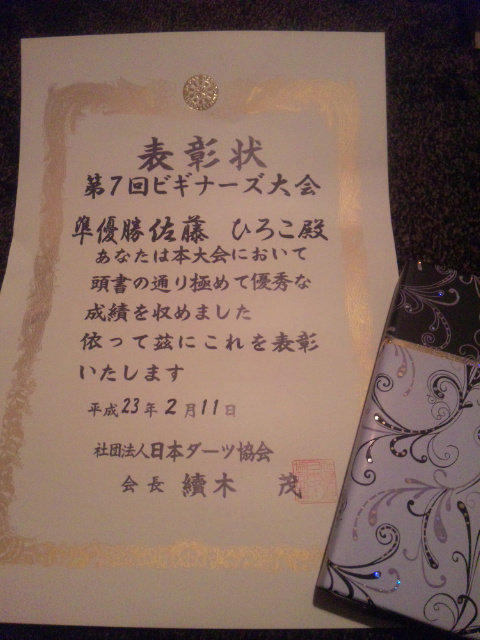 表彰状
第7回ビギナーズ大会
準優勝佐藤 ひろこ殿
あなたは本大会において
頭書の通り極めて優秀な
成績を収めました
依って茲にこれを表彰
いたします
平成23年2月11日
社団法人日本ダーツ協会
会長 續木 茂